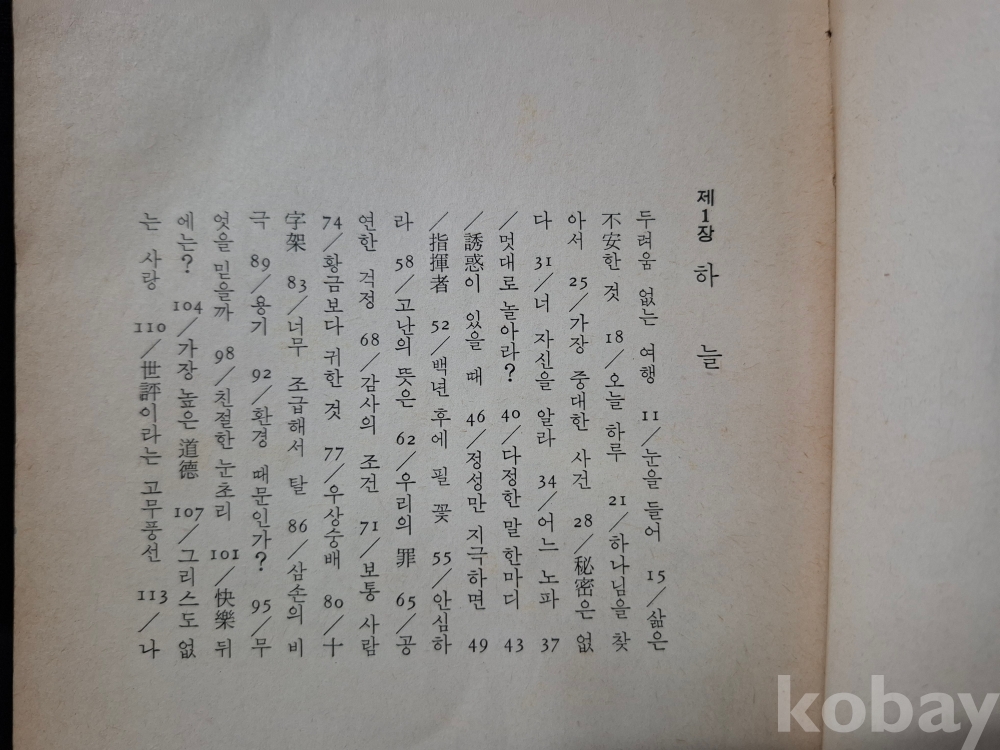 제1장 하늘
두려움 없는 여행 11/눈을 들어 15/삶은
不安한 것 18/오늘 하루 21/하나님을 찾
아서 25/가장 중대한 사건 28/秘密은 없
다 31/너 자신을 알라 34/어느 노파 37
/멋대로 놀아라? 40/다정한 말 한마디 43
/誘惑이 있을 때 46/정성만 지극하면 49
/指揮者 52/백년 후에 필 꽃 55/안심하
라 58/고난의 뜻은 62/우리의 罪 65/공
연한 걱정 68/감사의 조건 71/보통 사람
74/황금보다 귀한 것 77/우상숭배 80/十
字架 83/너무 조급해서 탈 86/삼손의 비
극 89/용기 92/환경 때문인가? 95/무
엇을 믿을까 98/친절한 눈초리 101/快樂 뒤
에는? 104/가장 높은 道德 107/그리스도 없
는 사랑 110/世評이라는 고무풍선 113/나
kobay